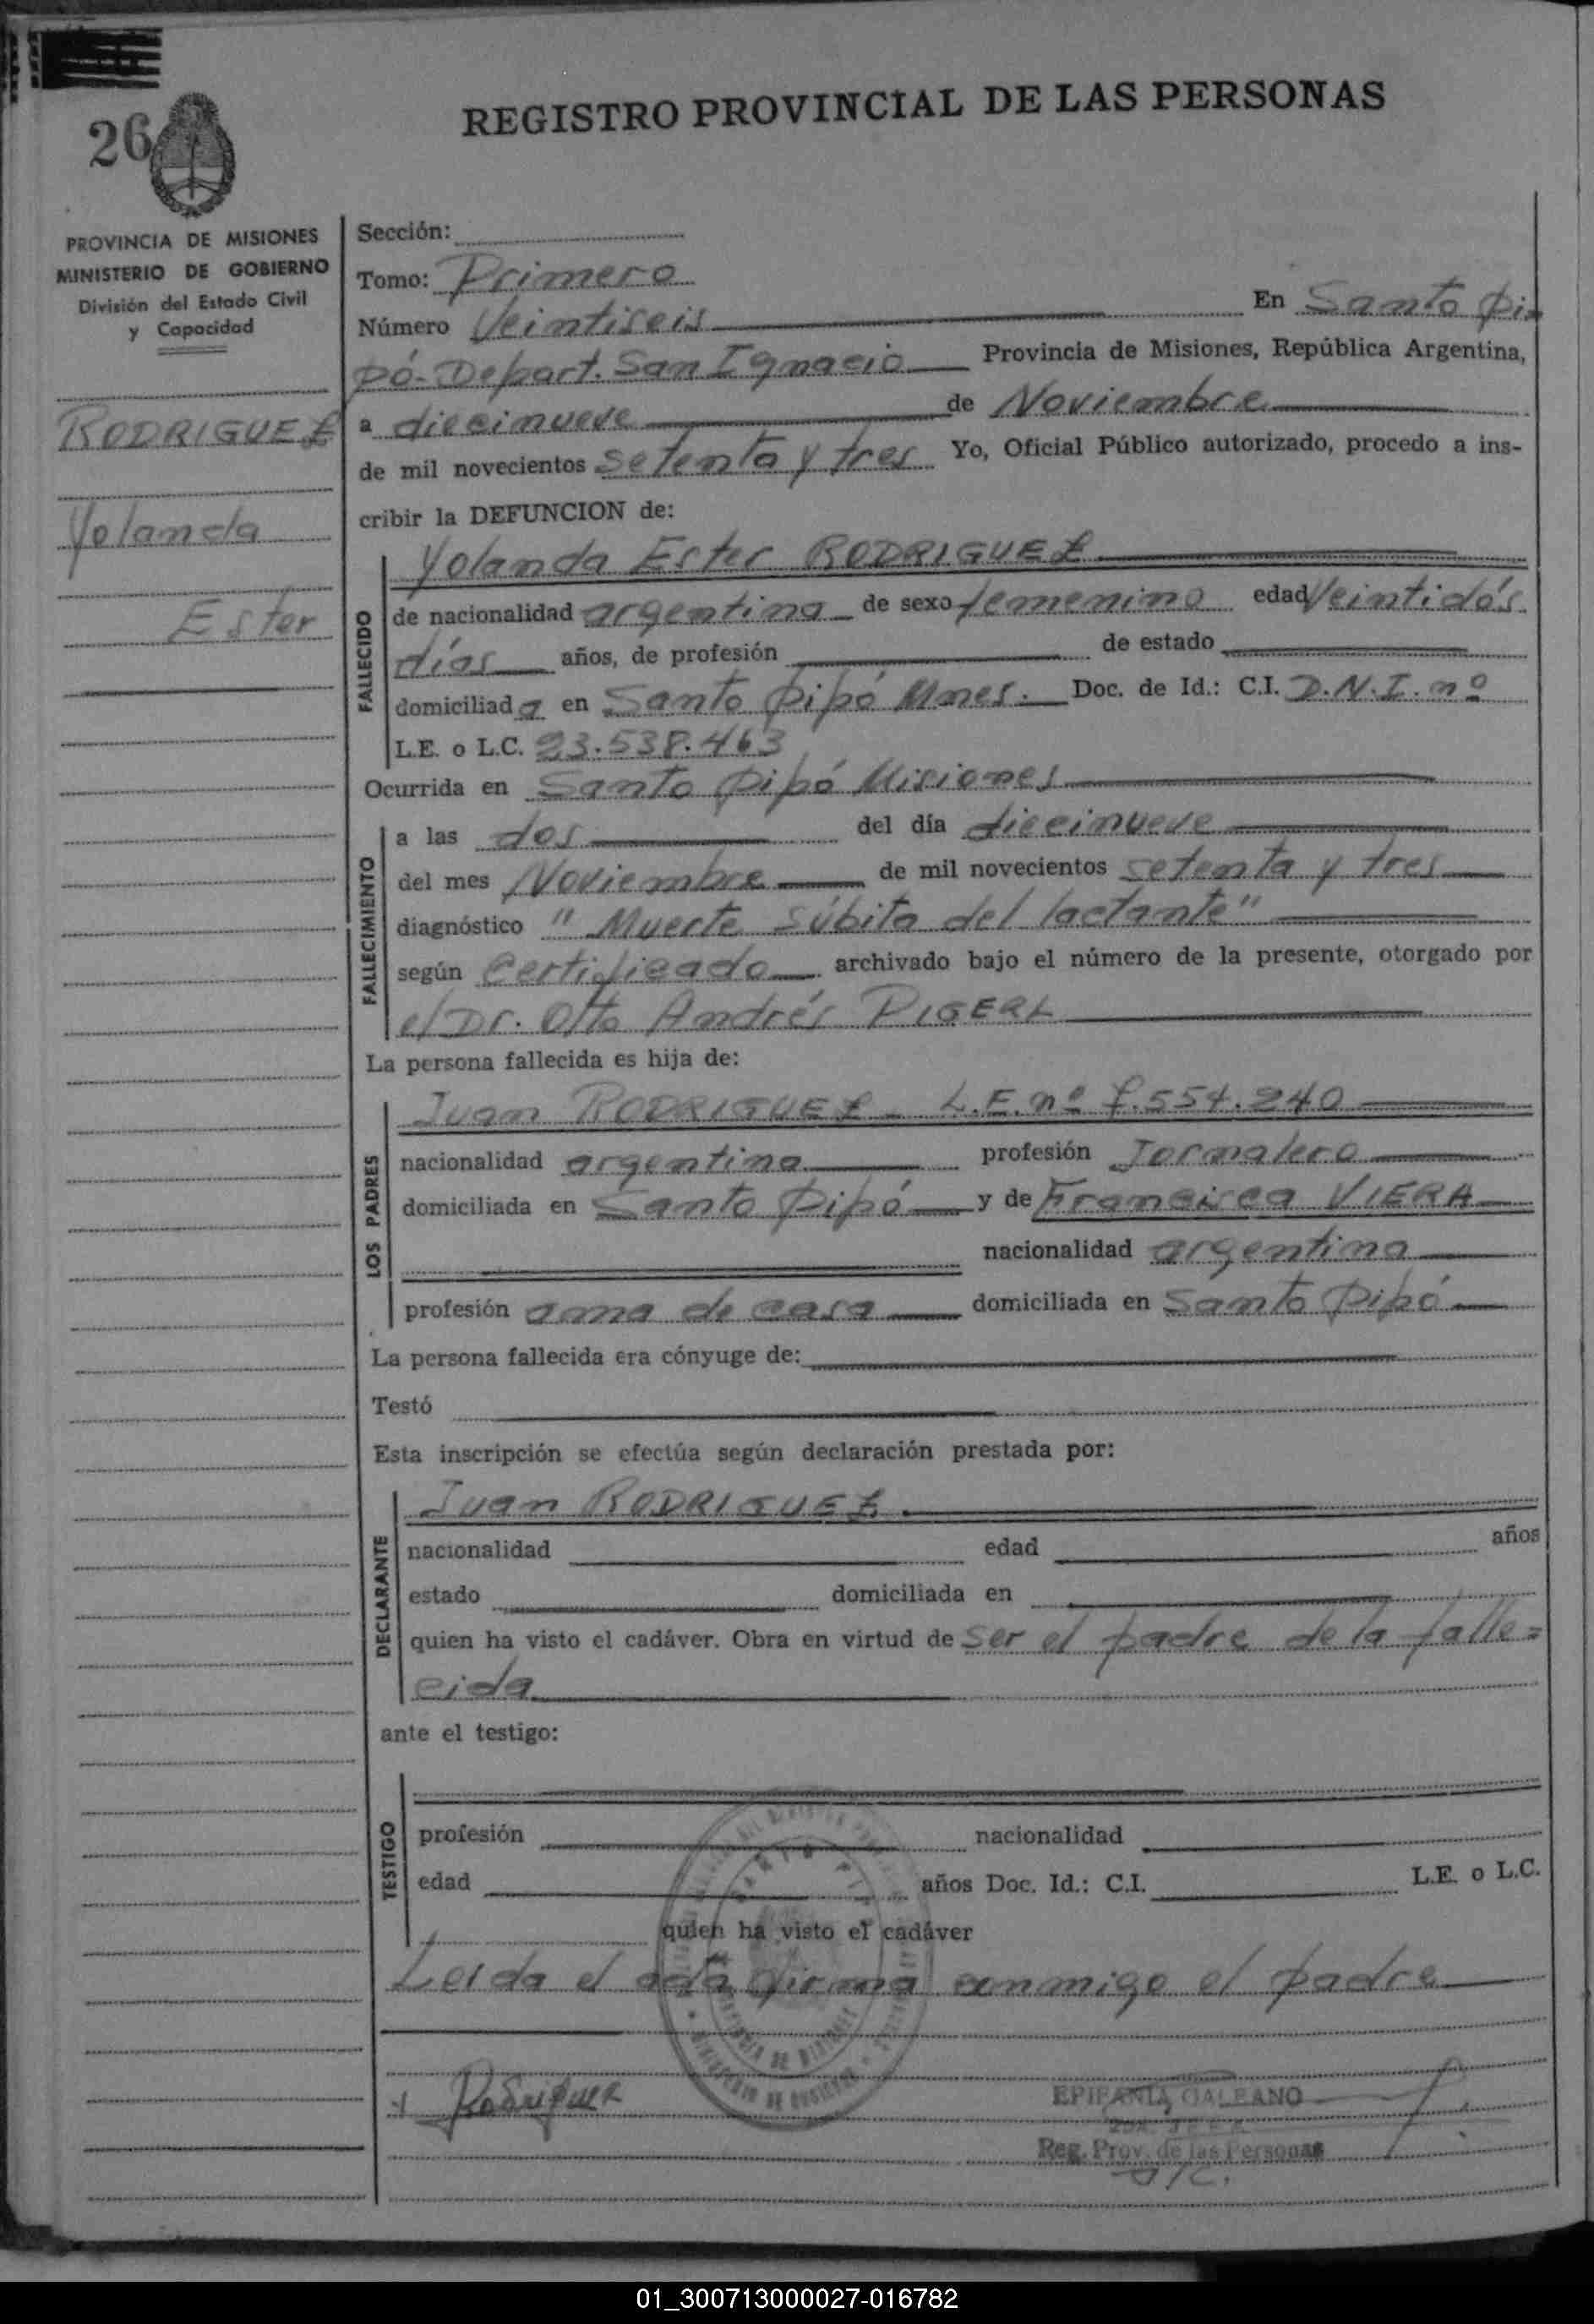 26
REGISTRO PROVINCIAL DE LAS PERSONAS
PROVINCIA DE MISIONES
MINISTERIO DE GOBIERNO
División del Estado Civil
y Capacidad
RODRIGUEZ
Yolanda
Ester
Sección:
Tomo: Primero
Número Veintiseis En Santo Pi-
pó-Depart. San Ignacio Provincia de Misiones, República Argentina,
a diecinueve de Noviembre
de mil novecientos setenta y tres Yo, Oficial Público autorizado, procedo a ins-
cribir la DEFUNCION de:
FALLECIDO
Yolanda Ester RODRIGUEZ
de nacionalidad argentina de sexo femenino edad Veintidós
días años, de profesión de estado
domiciliada en Santo Pipó Mnes. Doc. de Id.: C.I. D.N.I. nº
L.E. o L.C. 23.538.463
Ocurrida en Santo Pipó Misiones
FALLECIMIENTO
a las dos del día diecinueve
del mes Noviembre de mil novecientos setenta y tres
diagnóstico " Muerte súbita del lactante"
según Certificado archivado bajo el número de la presente, otorgado por
el Dr. Otto Andrés PIGERL
La persona fallecida es hija de:
LOS PADRES
Juan RODRIGUEZ - L.E. nº 7.554.240
nacionalidad argentina profesión Jornalero
domiciliada en Santo Pipó y de Francisca VIERA
nacionalidad argentina
profesión ama de casa domiciliada en Santo Pipó
La persona fallecida era cónyuge de:
Testó
Esta inscripción se efectúa según declaración prestada por:
DECLARANTE
Juan RODRIGUEZ
nacionalidad edad años
estado domiciliada en
quien ha visto el cadáver. Obra en virtud de ser el padre de la falle=
cida
ante el testigo:
TESTIGO
profesión nacionalidad
edad años Doc. Id.: C.I. L.E. o L.C.
quien ha visto el cadáver
Leida el acta firma conmigo el padre
Rodriguez
EPIFANIA GALEANO
Reg. Prov. de las Personas
a/c.
01_300713000027-016782